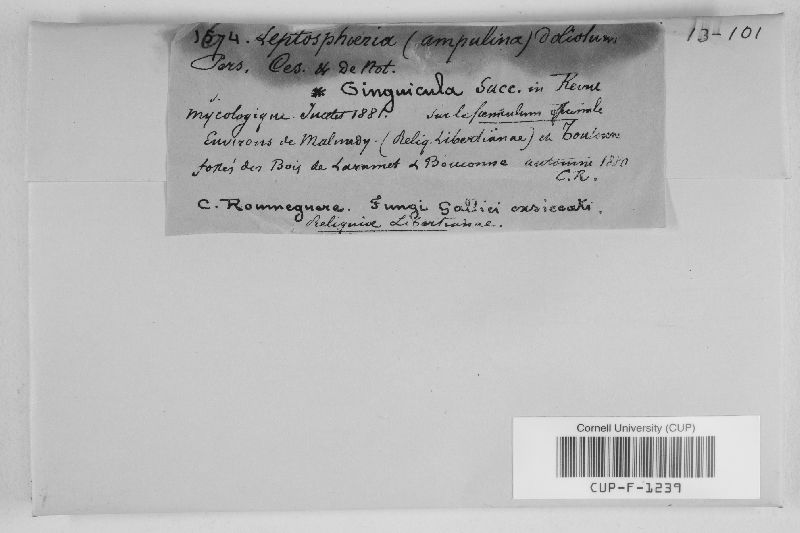 1574. Leptosphæria (ampulina) Doliolum
13-101
Pers. Ces. & De Not.
* Pinguicula Sacc. in Revue
Mycologique. 1881. Sur le fœniculum officinale
Environs de Malmedy. (Reliq. Libertianae) et Toulouse
forêt des Bois de Laramet & Bouconne automne 1880
C.R.
C. Roumeguere. Fungi Gallici exsiccati.
Reliquiæ Libertianae.
Cornell University (CUP)
CUP-F-1239